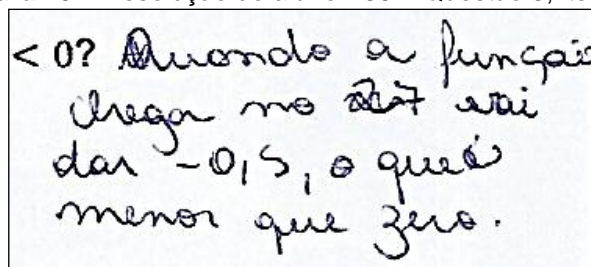 < 0? Quando a função
chega no 7 vai
dar -0,5, o que é
menor que zero.